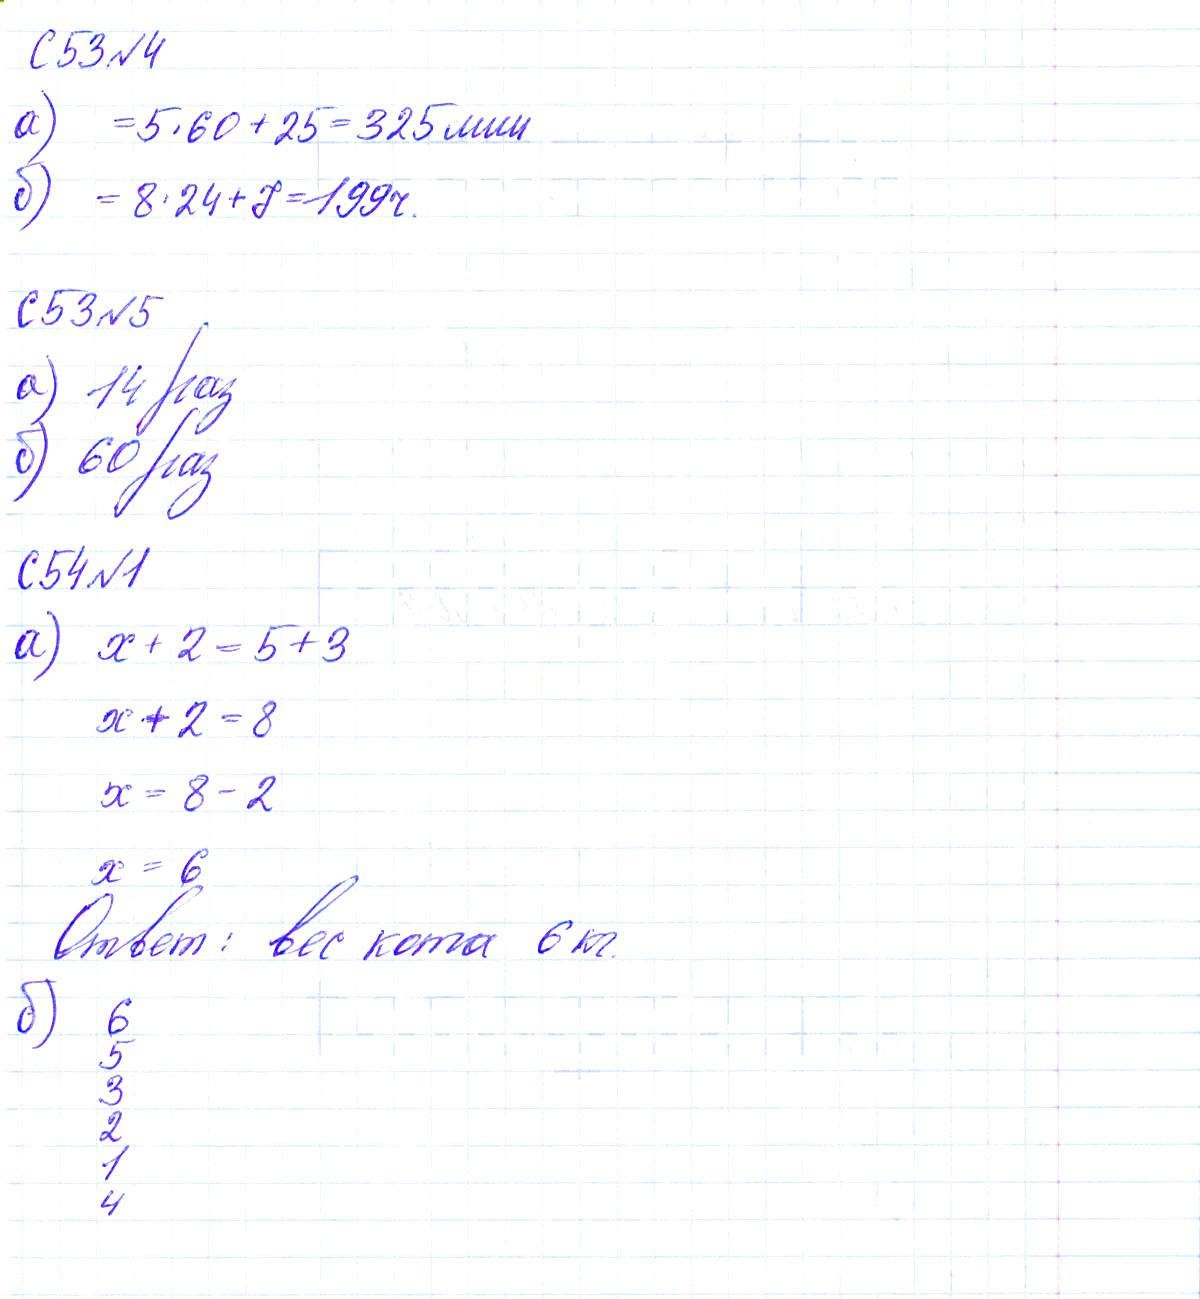 С53№4
а) =5·60+25=325мин
б) =8·24+7=199ч.
С53№5
а) 14 раз
б) 60 раз
С54№1
а) x+2=5+3
x+2=8
x=8-2
x=6
Ответ: вес кота 6кг.
б) 6
5
3
2
1
4